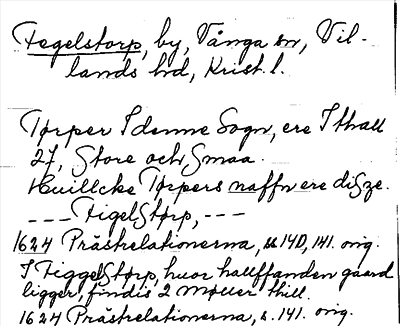 Fegelstorp, by, Vånga sn, Vil-
lands hd, Krist. l.
Tørper I denne Sogn, ere I thall
27, Store och Smaa.
Huillcke Tørpers naffn ere diSze.
--- FigelStørp, ---
1624 Prästrelationerna, s. 140, 141. orig.
I FiggelStørp, huor hallffanden gaard
ligger, findis 2 Møller thill.
1624 Prästrelationerna, s. 141. orig.